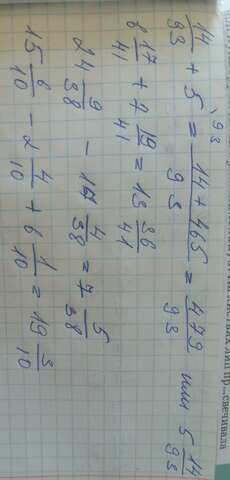 14/93 + 5 = 14+465/93 = 479/93 или 5 14/93
6 17/41 + 7 19/41 = 13 36/41
24 9/38 - 17 4/38 = 7 5/38
15 6/10 - 2 4/10 + 6 1/10 = 19 3/10